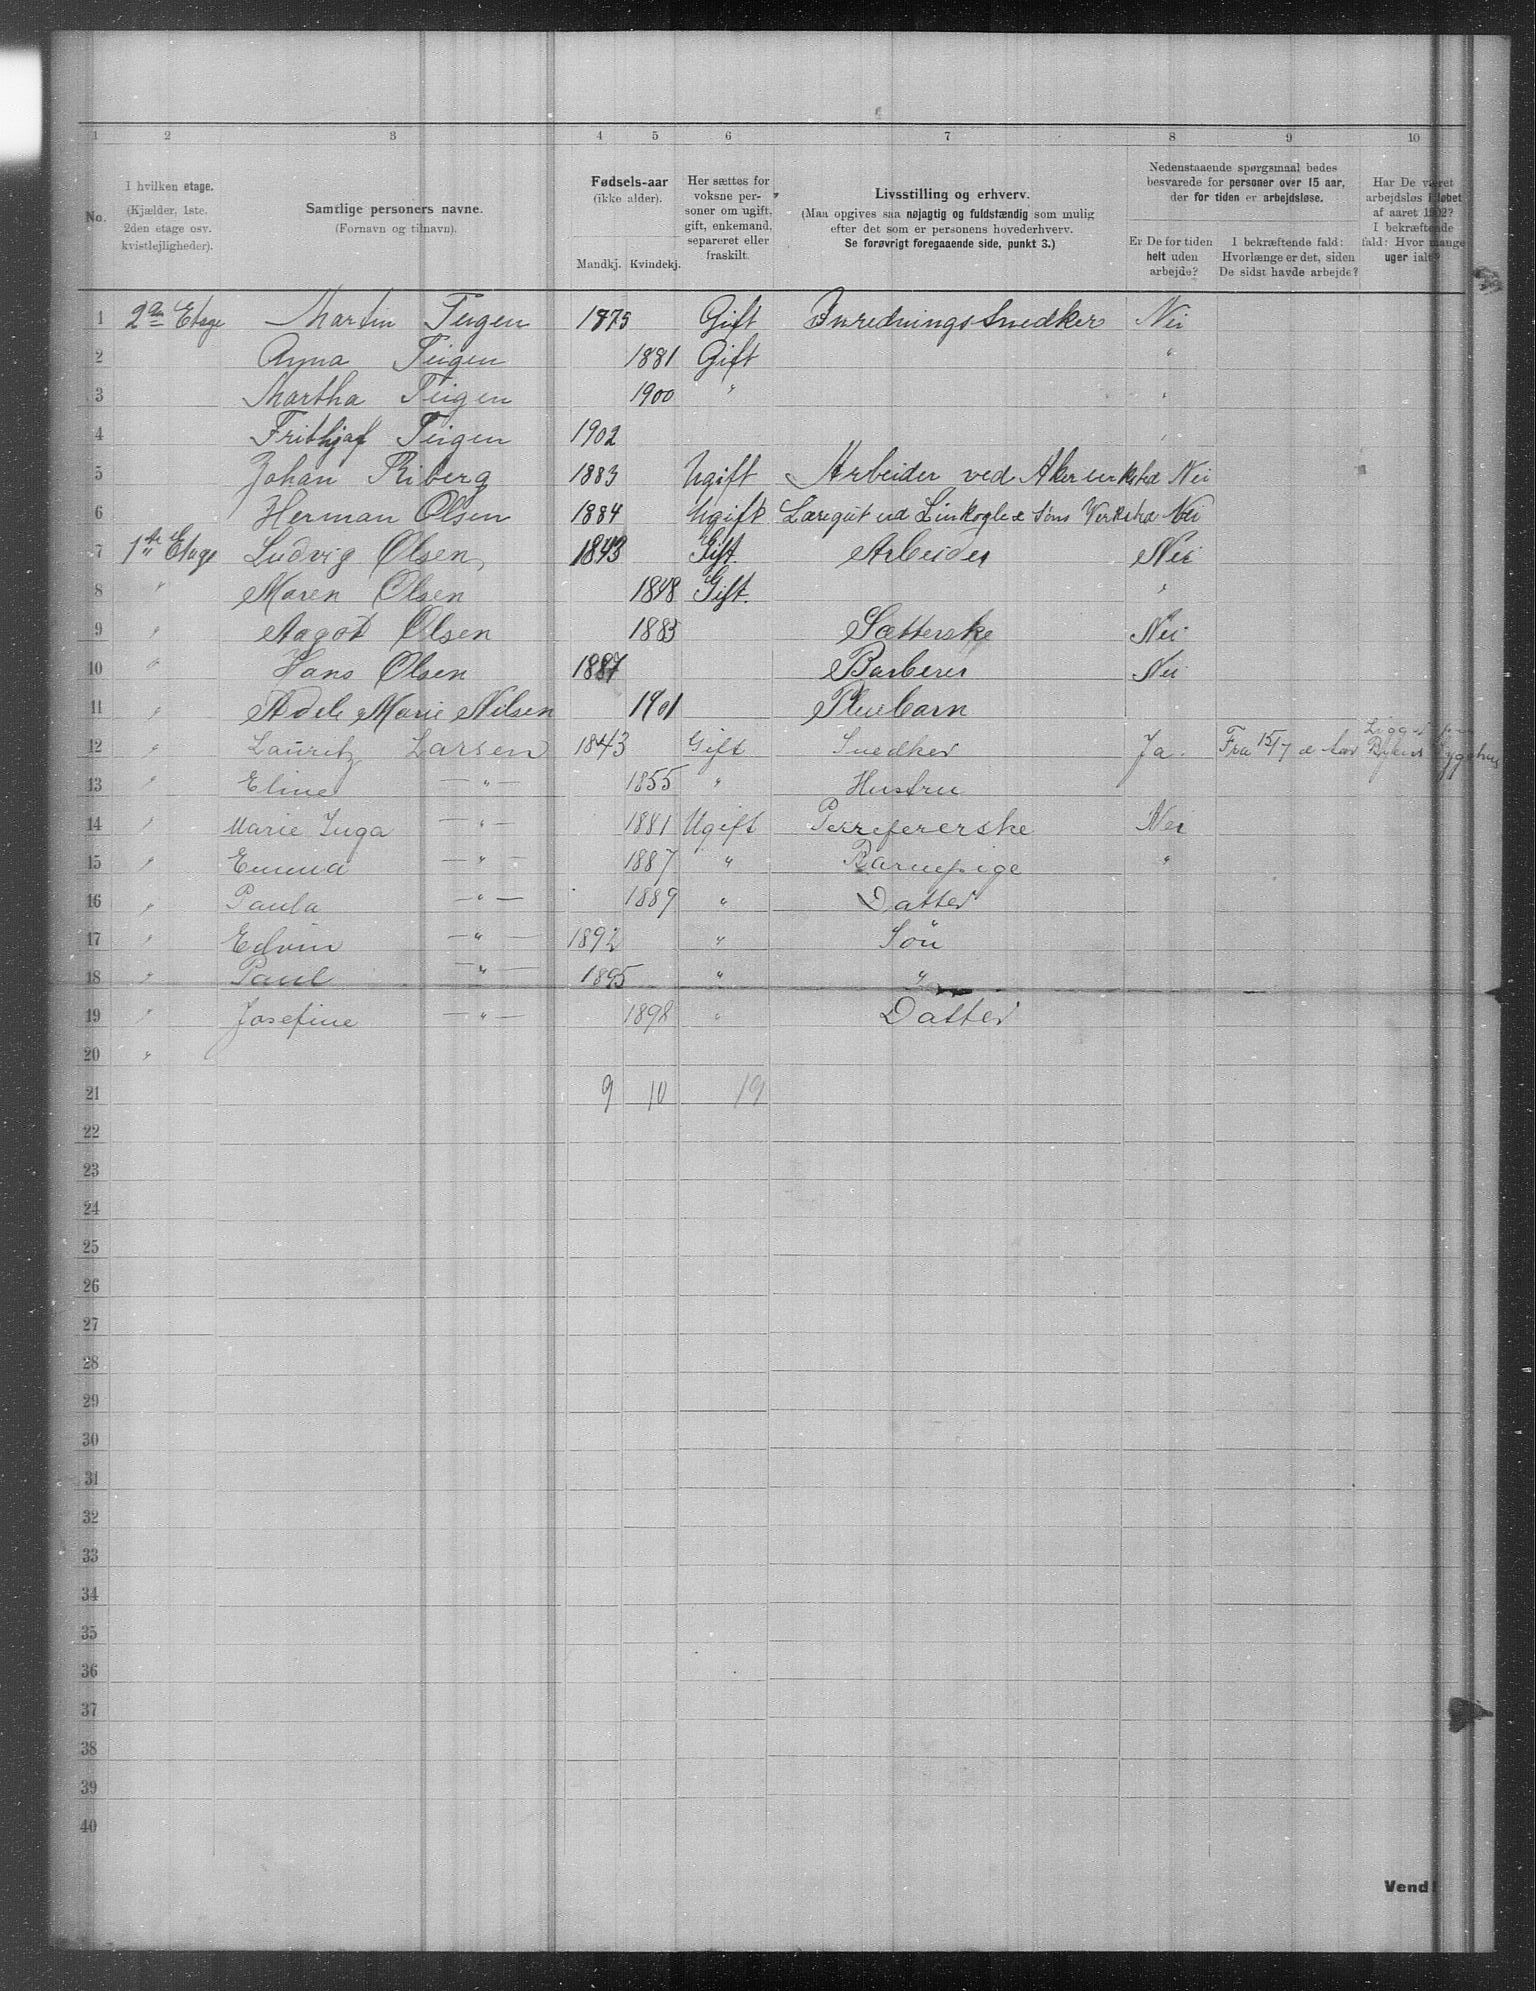 1 2 3 4 5 6 7 8 9 10
No.
I hvilken etage.
(Kjælder, 1ste.
2den etage osv.
kvistlejligheder).
Samtlige personers navne.
(Fornavn og tilnavn).
Fødsels-aar
(ikke alder).
Mandkj. Kvindekj.
Her sættes for
voksne per-
soner om ugift,
gift, enkemand,
separeret eller
fraskilt.
Livsstilling og erhverv.
(Maa opgives saa nøjagtig og fuldstændig som mulig
efter det som er personens hovederhverv.
Se forøvrigt foregaaende side, punkt 3.)
Nedenstaaende spørgsmaal bedes
besvarede for personer over 15 aar,
der for tiden er arbejdsløse.
Er De for tiden
helt uden
arbejde?
I bekræftende fald:
Hvorlænge er det, siden
De sidst havde arbejde?
Har De været
arbejdsløs i løbet
af aaret 1902?
I bekræftende
fald: Hvor mange
uger ialt?
1 2den Etage Martin Teigen 1875 Gift Inredningssnedker Nei
2 Anna Teigen 1881 Gift "
3 Martha Teigen 1900 " "
4 Frithjof Teigen 1902 "
5 Johan Riberg 1883 Ugift Arbeider ved Aker Nei
6 Herman Olsen 1884 Ugift Søns Nei
7 1ste Etage Ludvig Olsen 1843 Gift. Arbeider Nei
8 " Maren Olsen 1848 Gift. "
9 " Aagot Olsen 1883 Sætterske Nei
10 " Hans Olsen 1887 Barberer Nei
11 " Adele Marie Nilsen 1901 Pleiebarn
12 " Lauritz Larsen 1843 Gift Snedker Ja. Fra 15/7 Ligget paa Byens Sygehus
13 " Eline — " — 1855 " Hustru
14 " Marie Inga — " — 1881 Ugift Nei
15 " Emma — " — 1887 " Barnepige "
16 " Paula — " — 1889 " Datter
17 " Edvin — " — 1892 " Søn
18 " Paul — " — 1895 " "
19 " Josefine — " — 1898 " Datter
20 "
21 9 10 19
22
23
24
25
26
27
28
29
30
31
32
33
34
35
36
37
38
39
40
Vend!